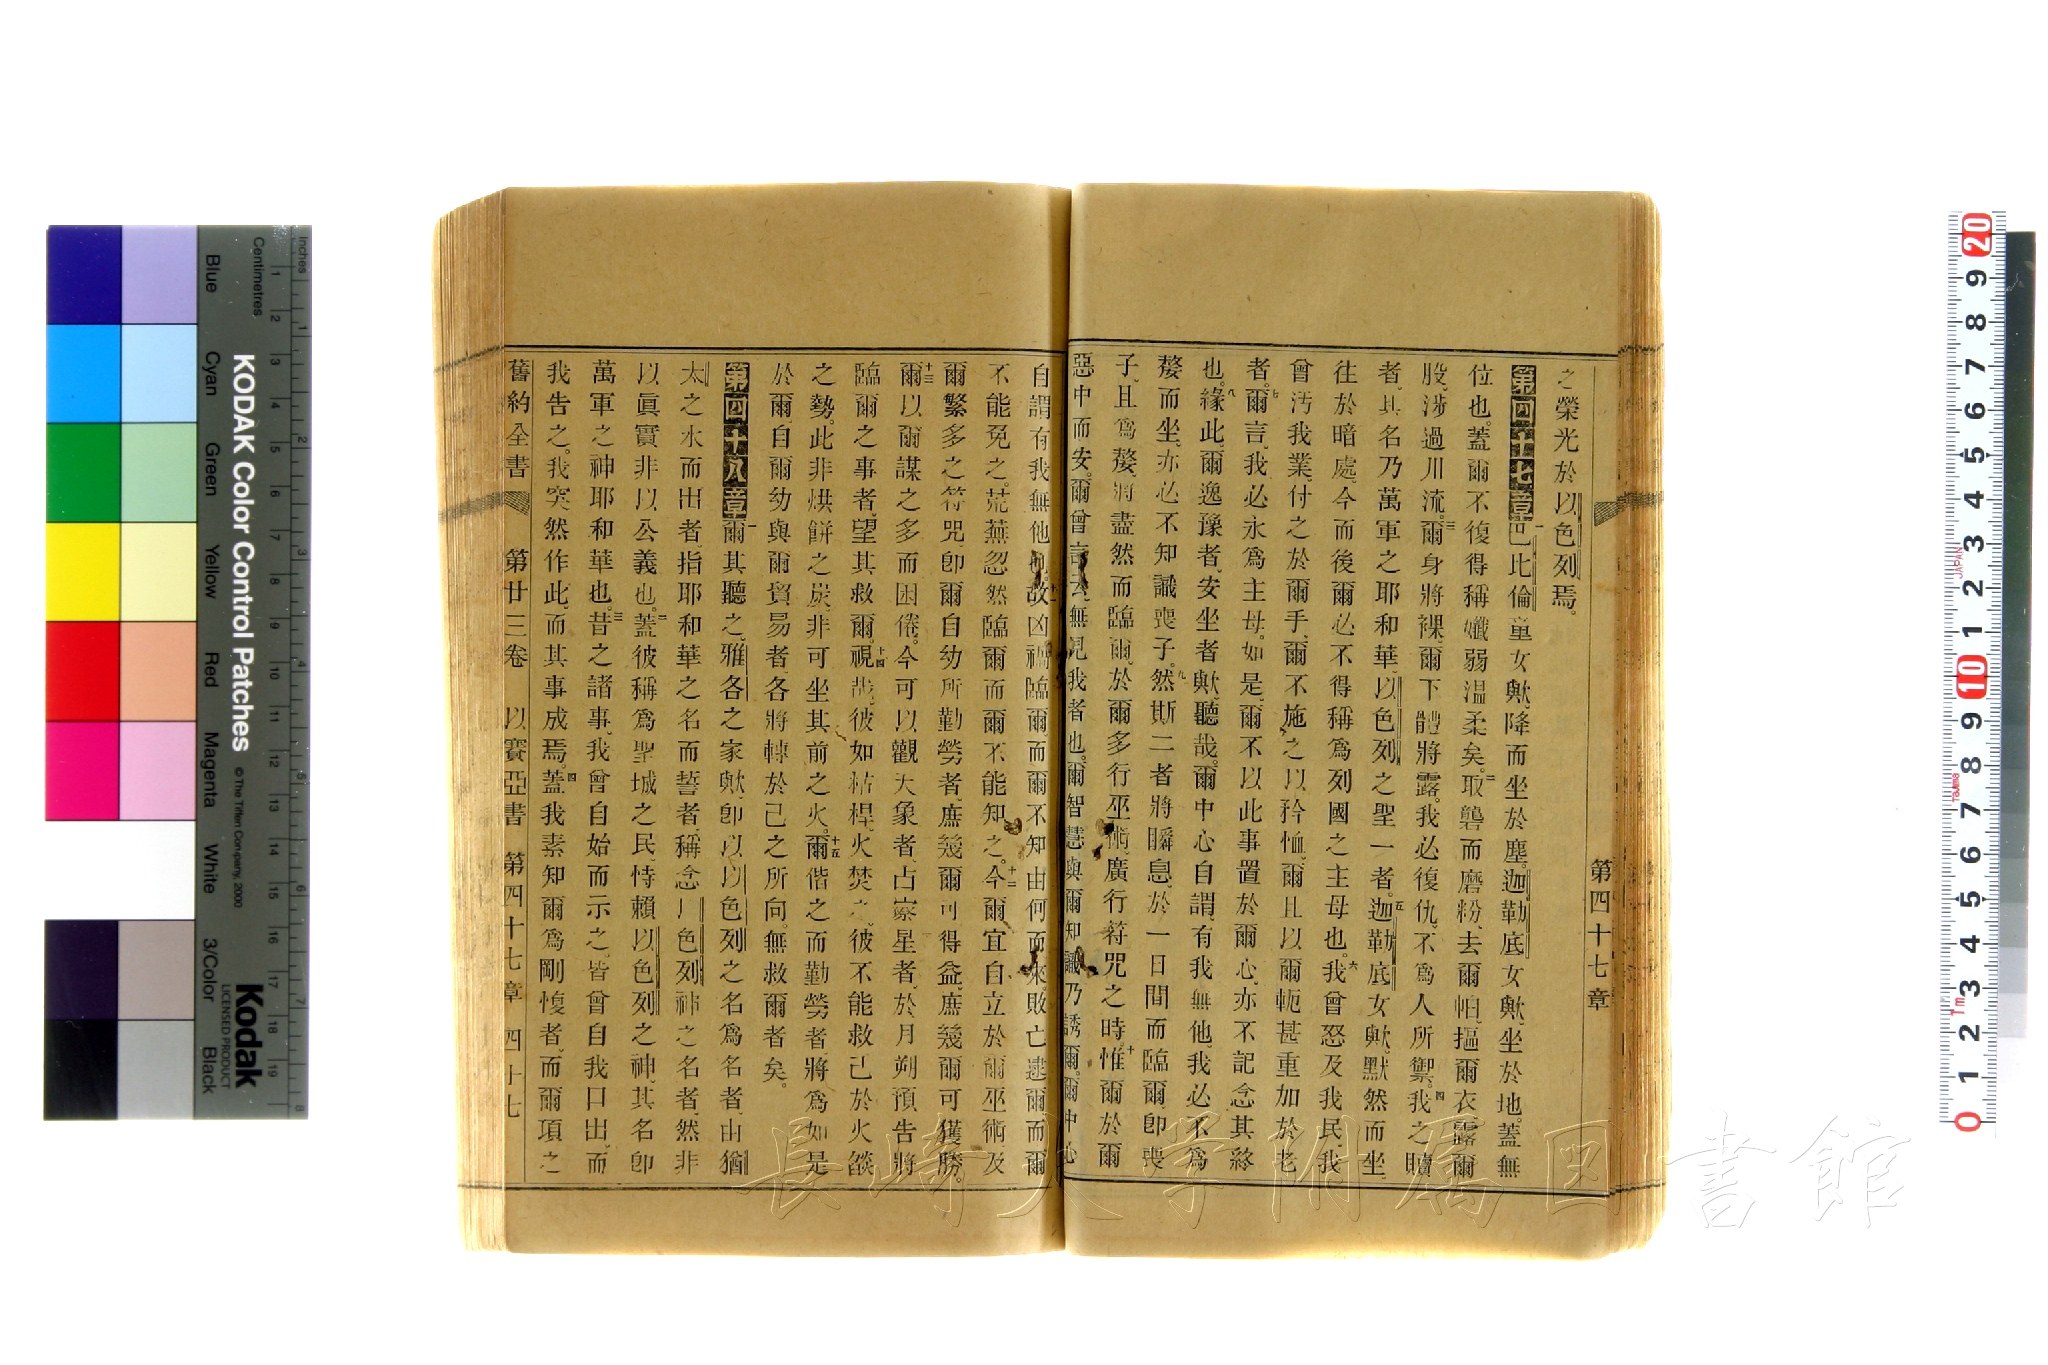 第四十七章
之榮光於以色列焉。
第四十七章一巴比倫童女歟、降而坐於塵。迦勒底女歟、坐於地。蓋無
位也。蓋爾不復得稱孅弱温柔矣。二取礱而磨粉、去爾帕、摳爾衣、露爾
股、涉過川流。三爾身將裸。爾下體將露。我必復仇。不爲人所禦。四我之贖
者、其名乃萬軍之耶和華、以色列之聖一者。五迦勒底女歟、默然而坐、
往於暗處、今而後爾必不得稱爲列國之主母也。六我曾怒及我民、我
曾汚我業、付之於爾手、爾不施之以矜恤、爾且以爾軛甚重加於老
者。七爾言、我必永爲主母。如是、爾不以此事置於爾心、亦不記念其終
也。八緣此、爾逸豫者、安坐者歟、聽哉。爾中心自謂、有我無他。我必不爲
嫠而坐、亦必不知識喪子。九然斯二者將瞬息、於一日間而臨爾、卽喪
子、且爲嫠、將盡然而臨爾、於爾多行巫術、廣行符咒之時。十惟爾於爾
惡中而安。爾曾言云、無見我者也。爾智慧與爾知識乃誘爾。爾中心
自謂有我無他也。十一故凶禍臨爾而爾不知由何而來。敗亡逮爾而爾
不能免之。荒蕪忽然臨爾而爾不能知之。十二今爾宜自立於爾巫術、及
爾繁多之符咒、卽爾自幼所勤勞者、庶幾爾可得益、庶幾爾可獲勝。
十三爾以爾謀之多而困倦。今可以觀天象者、占察星者、於月朔預告將
臨爾之事者、望其救爾。十四視哉、彼如秸稈、火焚之。彼不能救己於火燄
之勢。此非烘餠之炭、非可坐其前之火。十五爾偕之而勤勞者將爲如是
於爾、自爾幼與爾貿易者、各將轉於己之所向。無救爾者矣。
第四十八章一爾其聽之、雅各之家歟、卽以以色列之名爲名者、由猶
太之水而出者、指耶和華之名而誓者、稱念以色列神之名者、然非
以眞實、非以公義也。二蓋彼稱爲聖城之民、恃賴以色列之神、其名卽
萬軍之神耶和華也。三昔之諸事、我曾自始而示之。皆曾自我口出、而
我告之。我突然作此、而其事成焉。四蓋我素知爾爲剛愎者、而爾項之
舊約全書　第廿三卷　以賽亞書　第四十七章　四十七
KODAK Color Control Patches
© The Tiffen Company, 2000
Kodak
LICENSED PRODUCT
Inches
Centimetres
Blue
Cyan
Green
Yellow
Red
Magenta
White
3/Color
Black
長崎大学附属図書館